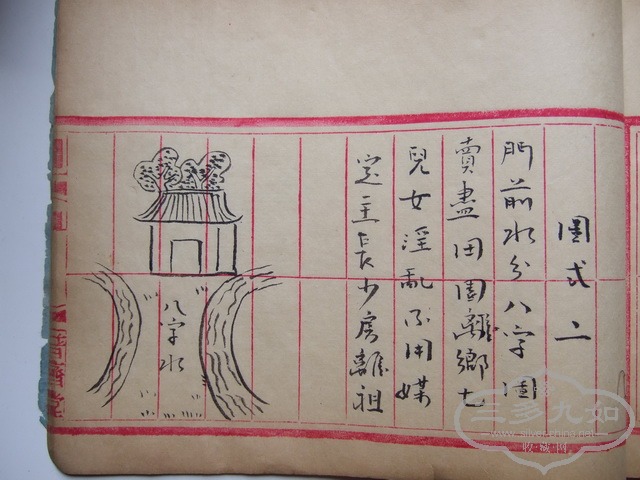 圖式二
門前水分八字圖
賣盡田園離鄉
兒女淫亂不用媒
定主長少房離祖
八字水
濟堂
三多九如
收藏网